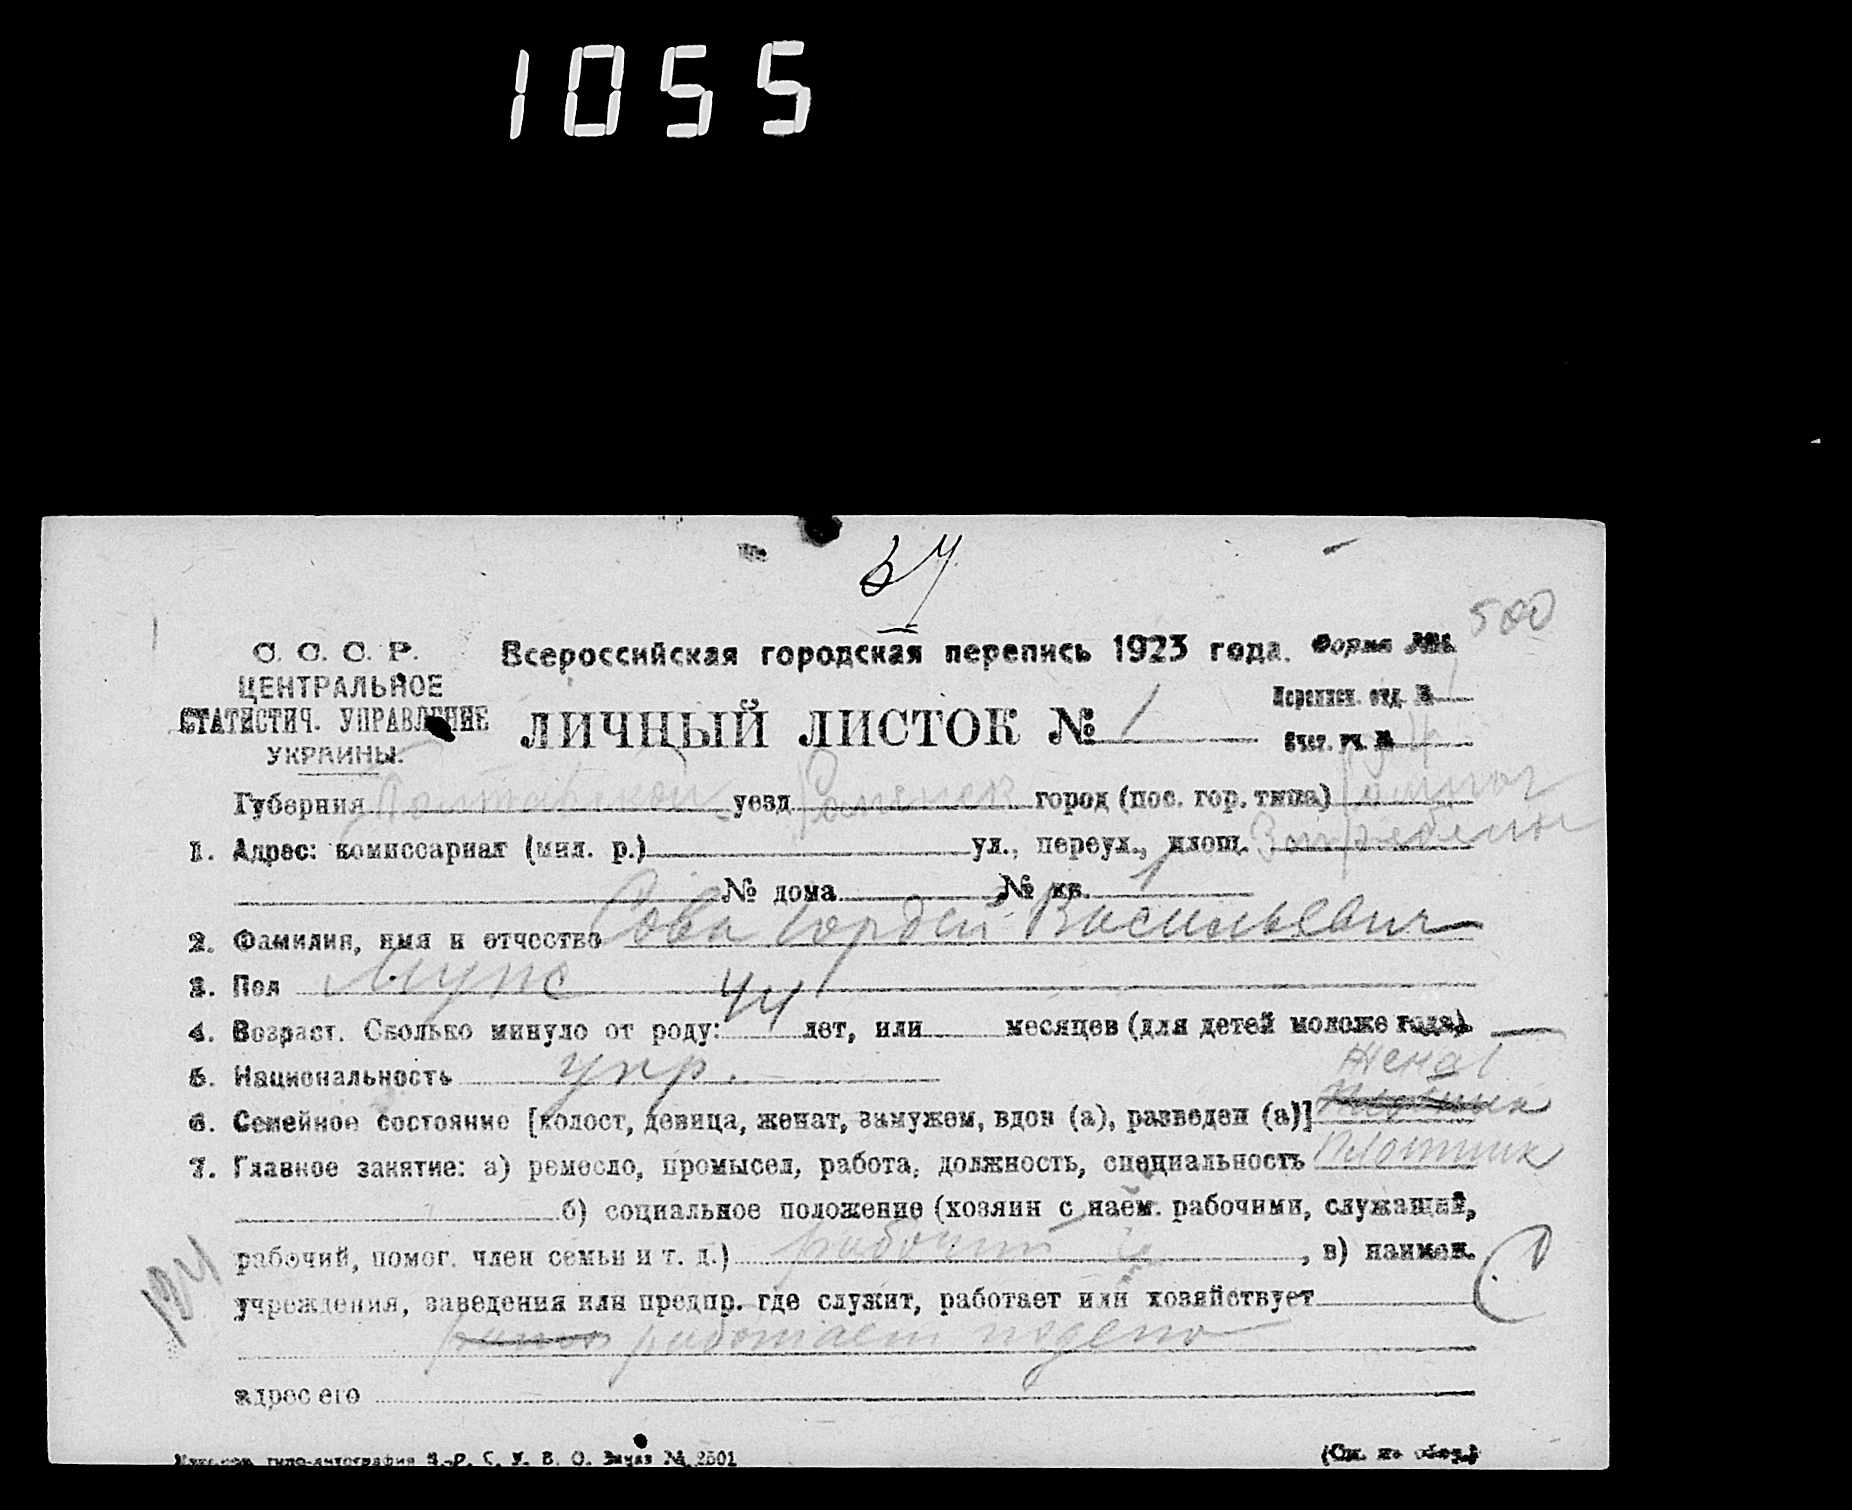 1055
500
С. С. С. Р.
ЦЕНТРАЛЬНОЕ
СТАТИСТИЧ. УПРАВЛЕНИЕ
УКРАИНЫ.
Всероссийская городская перепись 1923 года. Форма №
ЛИЧНЫЙ ЛИСТОК № 1
Переписн. отд. № 1
Счет. уч. №
Губерния Полтавской уезд Роменск город (пос. гор. типа)
1. Адрес: комиссариат (мил. р.) ул., переул., площ.
№ дома № кв. 1
2. Фамилия, имя и отчество Сова Гордей Васильевич
3. Пол Мужс
4. Возраст. Сколько минуло от роду: 44 лет, или месяцев (для детей моложе года). —
5. Национальность укр.
Женат
6. Семейное состояние [холост, девица, женат, замужем, вдов (а), разведен (а)]
7. Главное занятие: а) ремесло, промысел, работа, должность, специальность Плотник
б) социальное положение (хозяин с наем. рабочими, служащий,
рабочий, помог. член семьи и т. д.) рабочий, в) наимен.
учреждения, заведения или предпр. где служит, работает или хозяйствует
работает поденно
адрес его
У. В. О. Заказ № 2501
(См. на обор.)